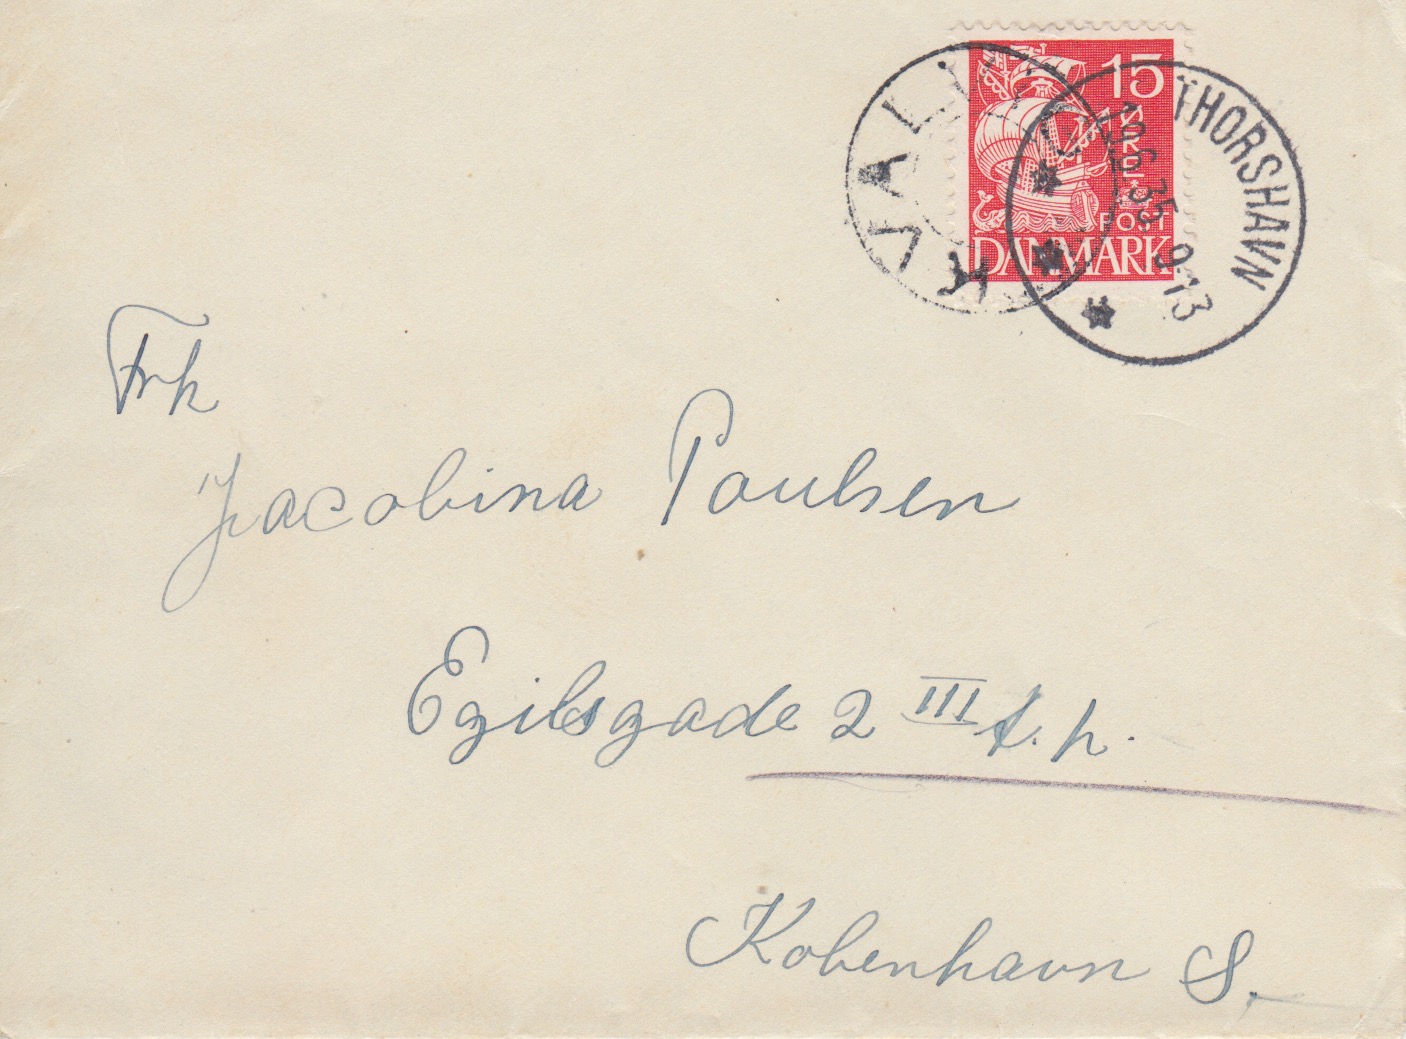 15
ØRE
POST
DANMARK
KVALVIG
THORSHAVN
10.6.35 9-13
Frk
Jacobina Poulsen
Egilsgade 2 III t.h.
København S.